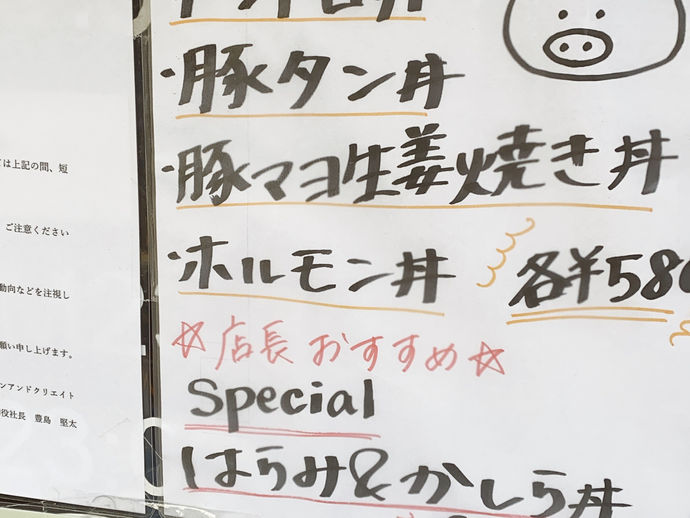 は上記の間、短
ご注意ください
動向などを注視し
願い申し上げます。
ンアンドクリエイト
役社長 豊島 堅太
・豚タン丼
・豚マヨ生姜焼き丼
・ホルモン丼
各¥580
☆店長おすすめ☆
Special
はらみ&かしら丼